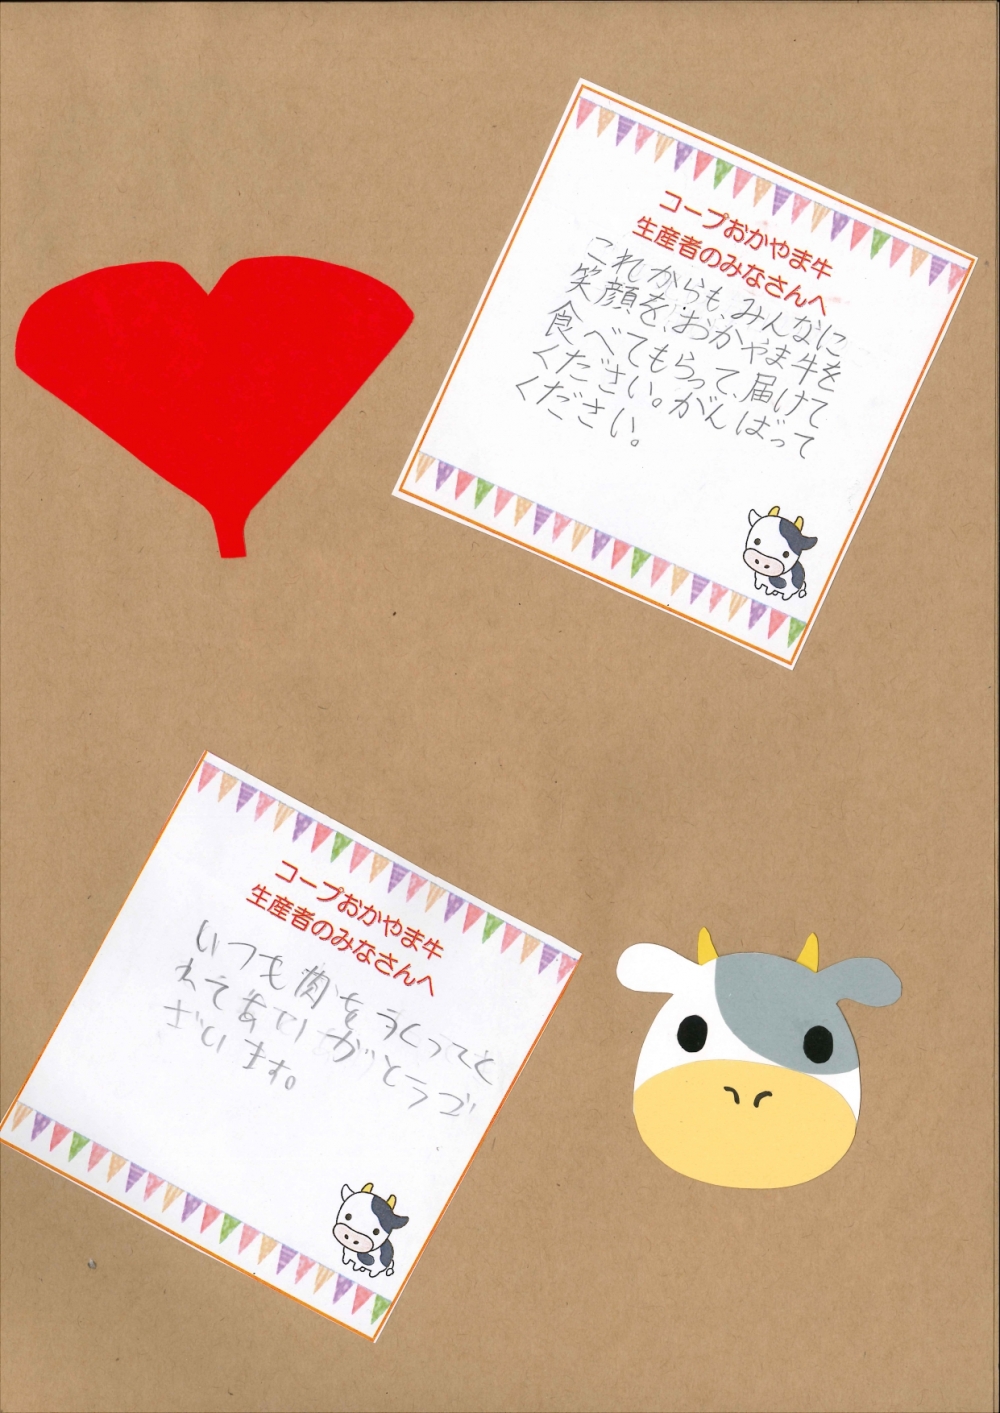 コープおかやま牛
生産者のみなさんへ
これからも、みんなに
笑顔を、おかやま牛を
食べてもらって、届けて
ください。がんばって
ください。
コープおかやま牛
生産者のみなさんへ
いつも肉をうくってく
れてありがとうご
ざいます。